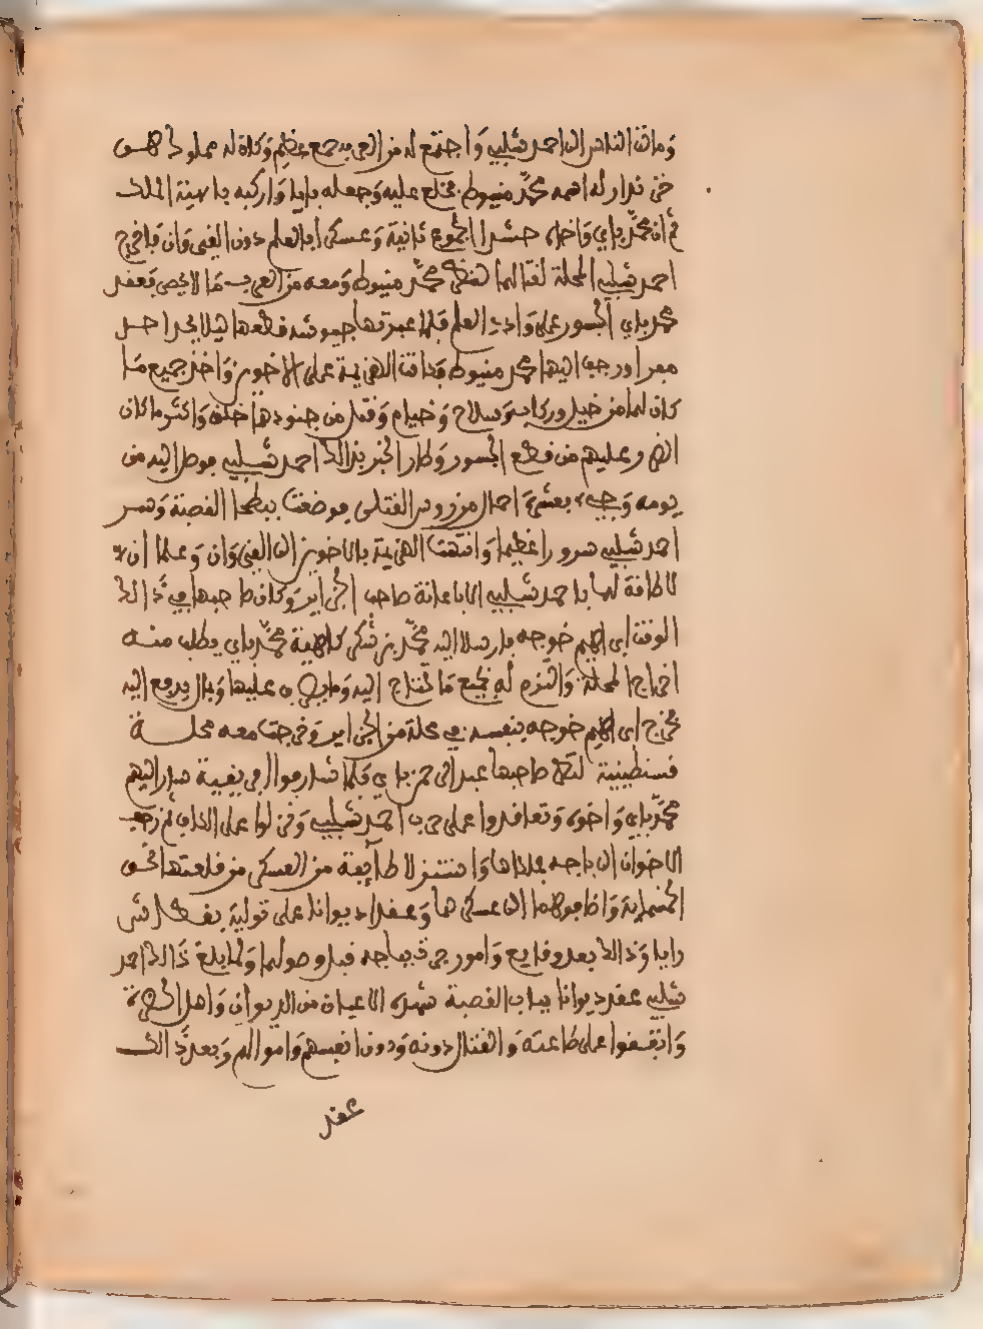 ومالت الناس الى احمد شلبي واجتمع له من العرب جمع عظيم وكان له مملوك
خزندار له اسمه محمد منيوط فخلع عليه وجعله بايا واركبه بابهة الملك
ثم ان محمد باي واخاه حشدا الجموع ثانية وعسكرا بالعلم دون القيروان فاخرج
احمد شلبي المحلة لقتالهما لنظر محمد منيوط ومعه من العرب ما لا يحصى فعقد
محمد باي الجسور على وادي العلم فلما عبرتها جيوشه قطعها ليلا يجد احد
مفرا ورجف اليهما محمد منيوط فكانت الهزيمة على الاخوين واخذ جميع ما
كان لهما من خيل وركاب وسلاح وخيام وقتل من جنودهما خلق واكثر ما كان
الضرر عليهم من قطع الجسور وطار الخبر بذالك احمد شلبي فوصل اليه من
يومه وجيء بعشرة احمال من رءوس القتلى فوضعت ببطحا القصبة وسر
احمد شلبي سرورا عظيما وانتهت الهزيمة بالاخوين الى القيروان وعلما ان
لا طاقة لهما باحمد شلبي الا باعانة صاحب الجزاير وكان صاحبها في ذالك
الوقت ابراهيم خوجه فارسلا اليه محمد بن شكر كاهية محمد باي يطلب منه
اخراج المحلة والتزم له بجميع ما تحتاج اليه وما يصرف عليها وبمال يدفع اليه
فخرج ابراهيم خوجه بنفسه في محلة من الجزاير وخرجت معه محلة
قسنطينية لنظر صاحبها عبد الرحمن باي فلما شارفوا افريقية سار اليهم
محمد باي واخوه وتعاقدوا على حرب احمد شلبي ونزلوا على الكاف ثم زحف
الاخوان الى باجه فملكاها واستنزلا طايفة من العسكر من قلعتها نحو
الخمسماية واضافوهما الى عسكرهما وعقدا ديوانا على تولية بقطاش
دايا وذالك بعد وقايع وامور جرت بباجه قبل وصولهما ولما بلغ ذالك احمد
شلبي عقد ديوانا بباب القصبة شهده الاعيان من الديوان واهل الحضرة
واتفقوا على طاعته والقتال دونه ودون انفسهم واموالهم وبعد ذالك
عقد